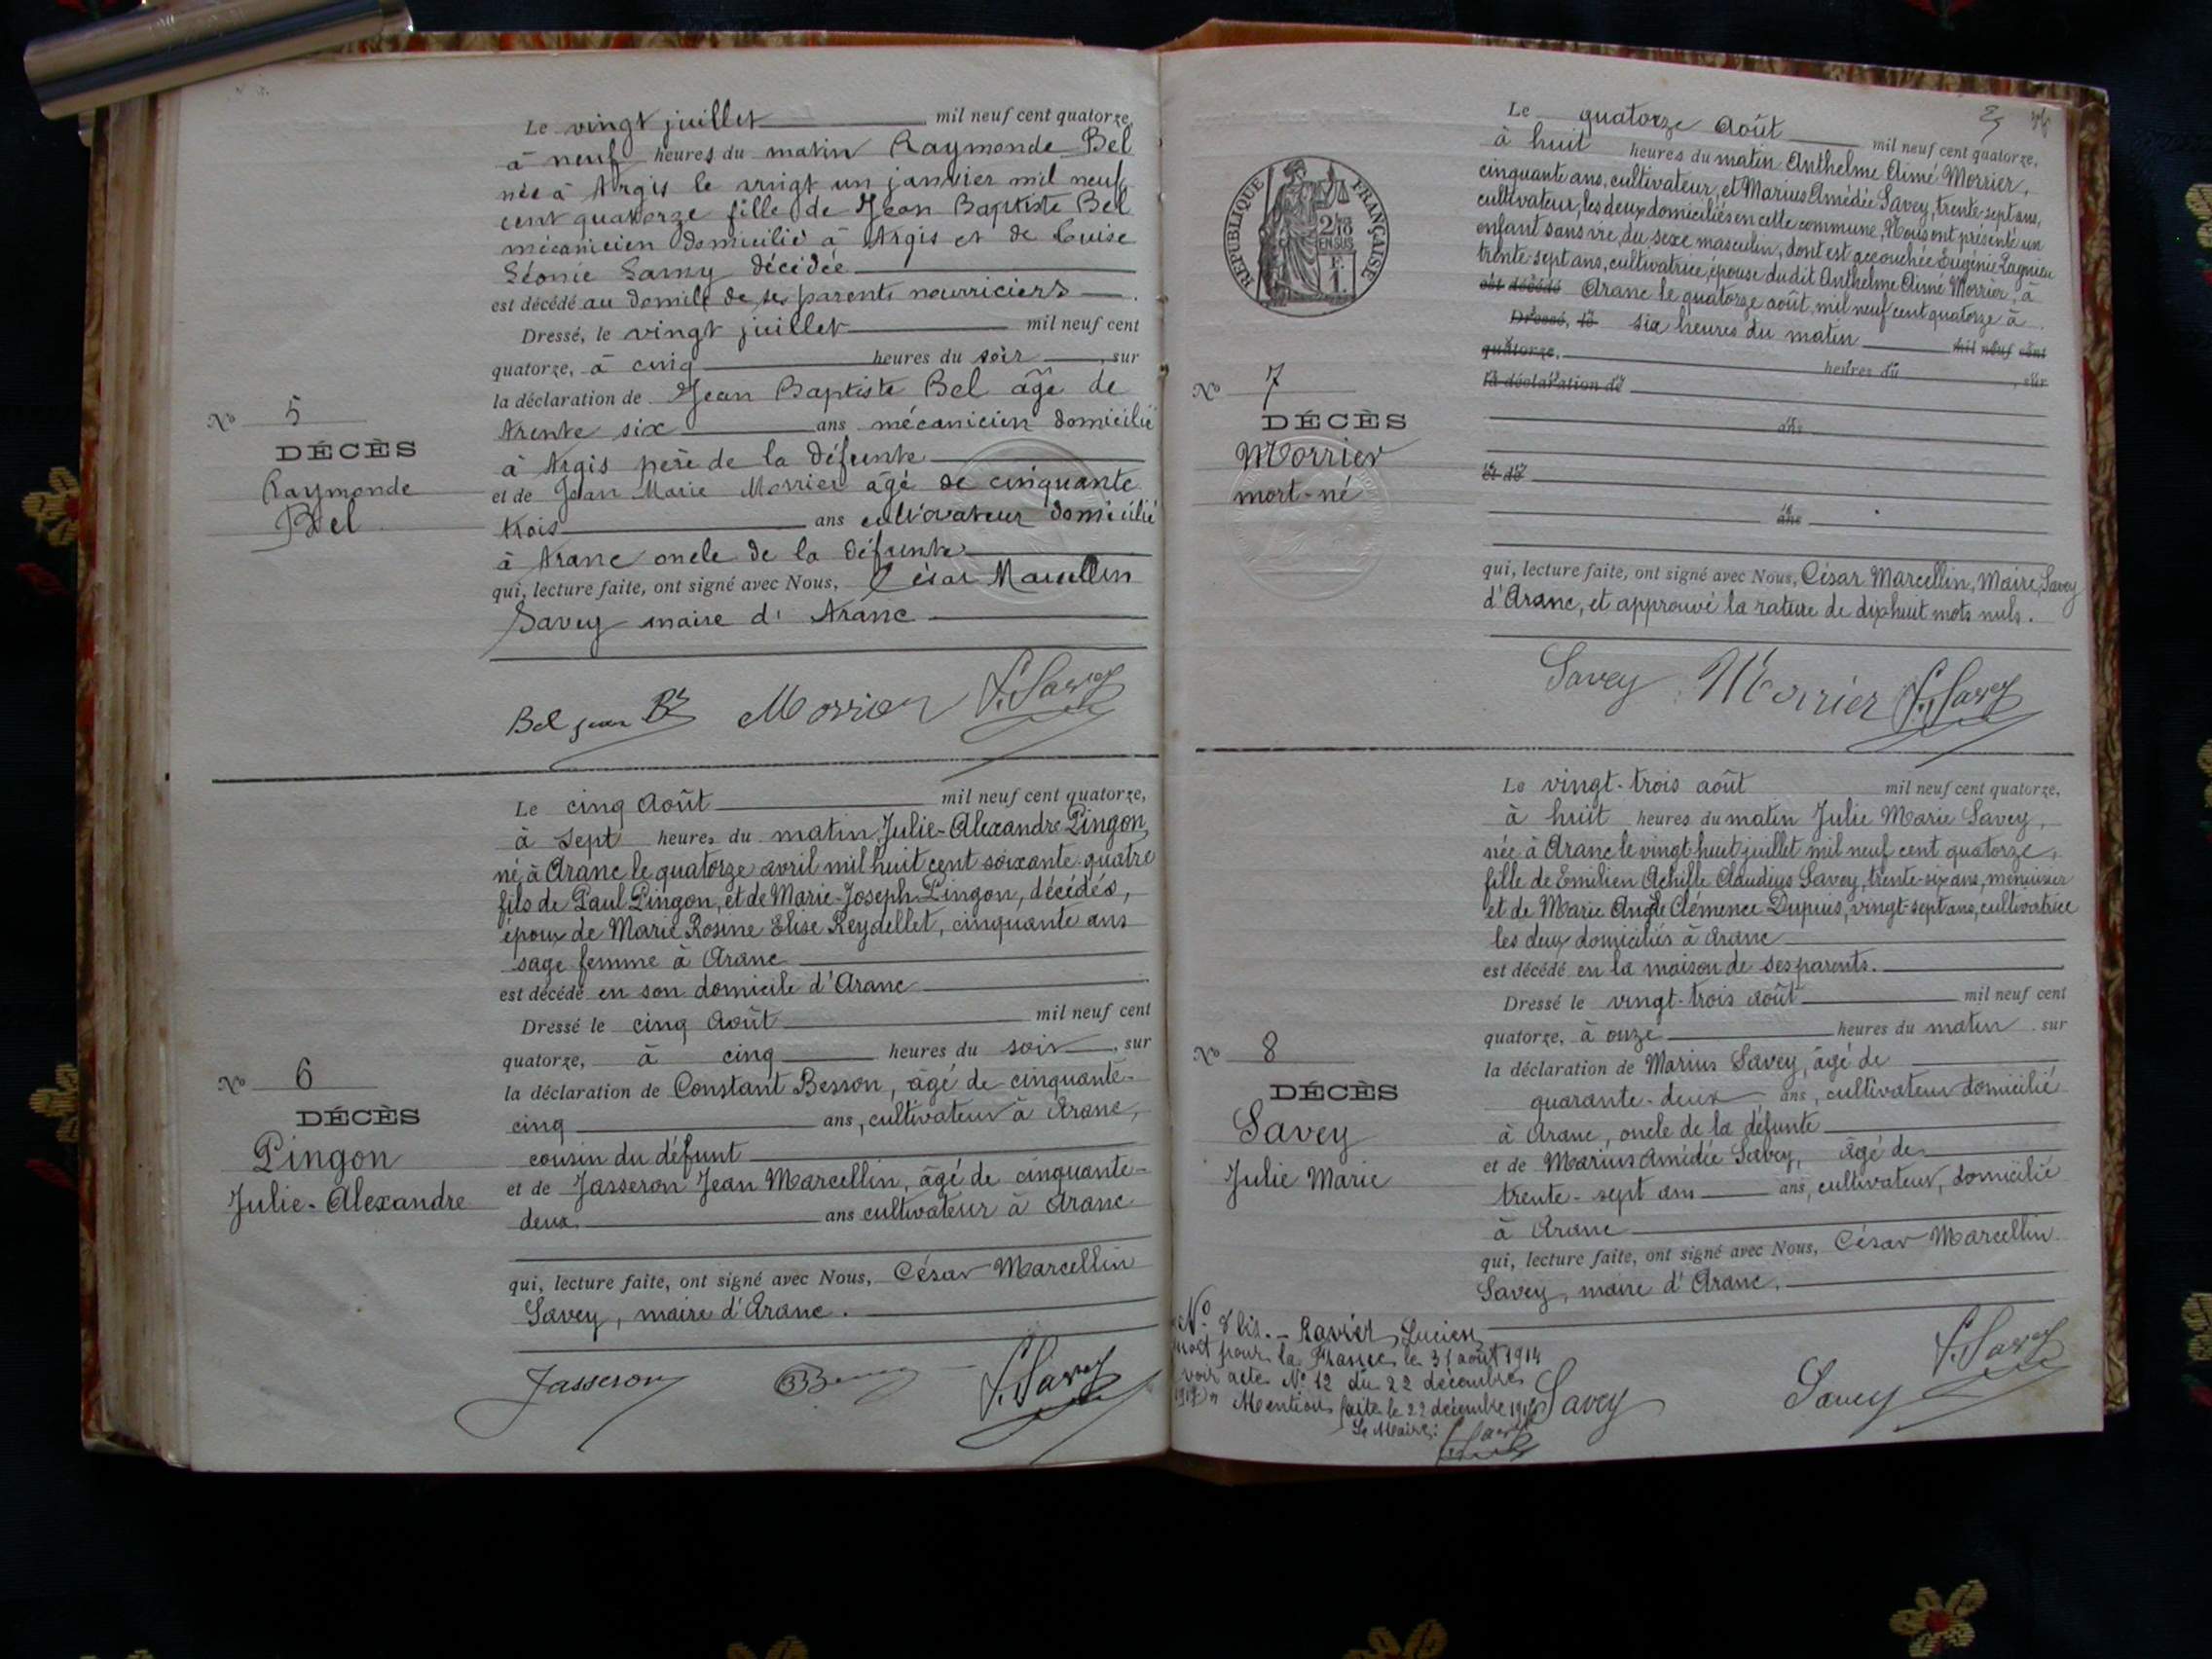 Le vingt juillet mil neuf cent quatorze,
à neuf heures du matin Raymonde Bel
née à Argis le vingt un janvier mil neuf
cent quatorze fille de Jean Baptiste Bel
mécanicien domicilié à Argis et de Louise
Léonie Lamy décédée
est décédé au domile de ses parents nourriciers.
Dressé, le vingt juillet mil neuf cent
quatorze, à cinq heures du soir, sur
la déclaration de Jean Baptiste Bel âgé de
trente six ans mécanicien domicilié
à Argis père de la défunte
et de Jean Marie Morrier âgé de cinquante
trois ans cultivateur domicilié
à Aranc oncle de la défunte
qui, lecture faite, ont signé avec Nous, César Marcellin
Savey maire d'Aranc
No 5
DÉCÈS
Raymonde
Bel
Bel jean Bte Morrier Savey
Le cinq Août mil neuf cent quatorze,
à sept heures du matin Julie-Alexandre Pingon,
né à Aranc le quatorze avril mil huit cent soixante-quatre
fils de Paul Pingon, et de Marie-Joseph Pingon, décédés,
époux de Marie Rosine Elise Reydellet, cinquante ans
sage femme à Aranc
est décédé en son domicile d'Aranc
Dressé le cinq Août mil neuf cent
quatorze, à cinq heures du soir, sur
la déclaration de Constant Besson, âgé de cinquante-
cinq ans, cultivateur à Aranc,
cousin du défunt
et de Jasseron Jean Marcellin, âgé de cinquante-
deux ans cultivateur à Aranc
qui, lecture faite, ont signé avec Nous, César Marcellin
Savey, maire d'Aranc.
No 6
DÉCÈS
Pingon
Julie-Alexandre
Jasseron Savey
RÉPUBLIQUE FRANÇAISE
2/10
EN SUS
F.
1.
Le quatorze Août mil neuf cent quatorze,
à huit heures du matin Anthelme Aimé Morrier,
cinquante ans, cultivateur, et Marius Amédée Savey, trente-sept ans,
cultivateur, les deux domiciliés en cette commune, Nous ont présenté un
enfant sans vie, du sexe masculin, dont est accouchée Eugénie Lagnieu
trente-sept ans, cultivatrice, épouse du dit Anthelme Aimé Morrier, à
est décédé Aranc le quatorze août, mil neuf cent quatorze à
Dressé, le six heures du matin mil neuf cent
quatorze, heures du, sur
la déclaration de
ans
et de
ans
qui, lecture faite, ont signé avec Nous, César Marcellin, Maire, Savey
d'Aranc, et approuvé la rature de dix huit mots nuls.
No 7
DÉCÈS
Morrier
mort-né
Savey Morrier Savey
Le vingt-trois août mil neuf cent quatorze,
à huit heures du matin Julie Marie Savey,
née à Aranc le vingt huit juillet mil neuf cent quatorze,
fille de Emilien Achille Claudius Savey, trente-six ans, menuisier
et de Marie Angle Clémence Dupuis, vingt-sept ans, cultivatrice
les deux domiciliés à Aranc
est décédé en la maison de ses parents.
Dressé le vingt-trois août mil neuf cent
quatorze, à onze heures du matin, sur
la déclaration de Marius Savey, âgé de
quarante-deux ans, cultivateur domicilié
à Aranc, oncle de la défunte
et de Marius Amédée Savey, âgé de
trente-sept ans ans, cultivateur, domicilié
à Aranc
qui, lecture faite, ont signé avec Nous, César Marcellin
Savey, maire d'Aranc.
No 8
DÉCÈS
Savey
Julie Marie
No 8 bis. - Ravier, Lucien,
mort pour la France le 31 août 1914
voir acte No 12 du 22 décembre
Mention faite le 22 décembre
Le Maire: Savey
Savey Savey Savey